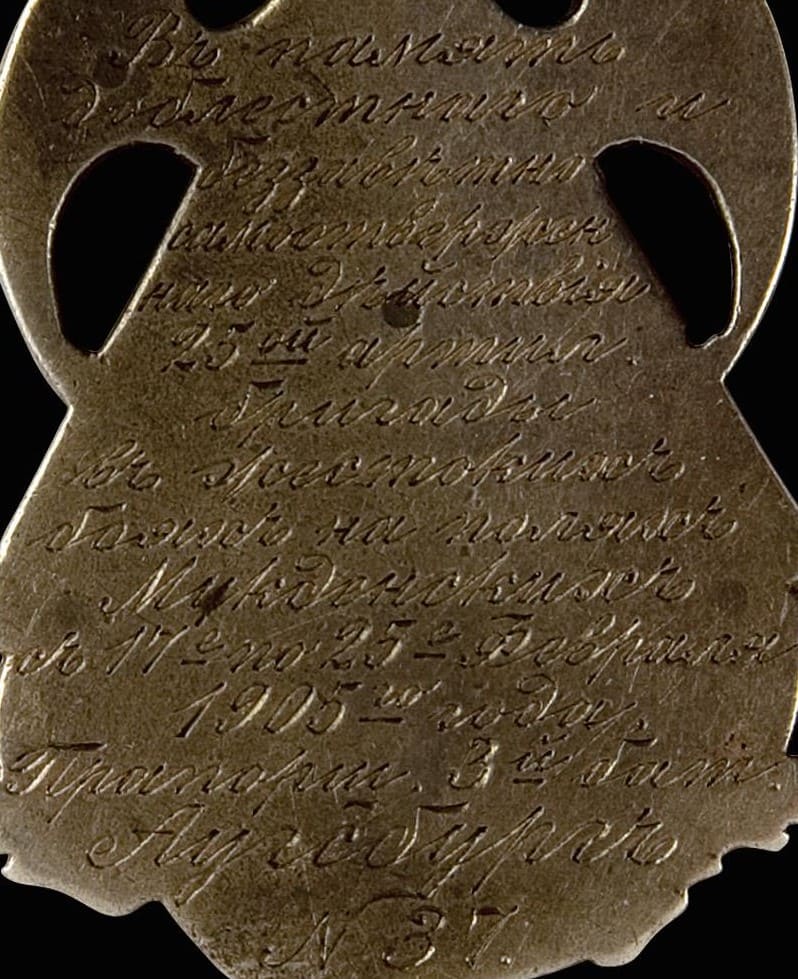 Въ память
доблестнаго и
беззавѣтно
самоотвержен
наго дѣйствія
25ой артил.
бригады
въ жестокихъ
бояхъ на поляхъ
Мукденскихъ
съ 17е по 25е Февраля
1905го года.
Прапорщ. 3й бат.
Аугсбургъ
N 37.